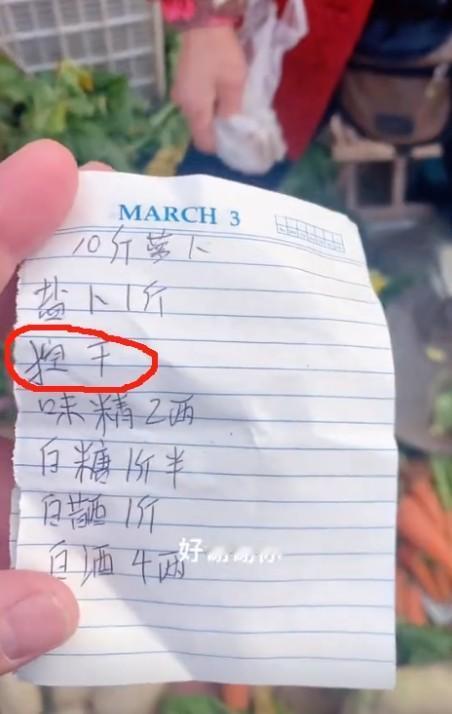 MARCH 3
10斤萝卜
盐卜1斤
控干
味精2两
白糖1斤半
白醋1斤
白酒4两
好